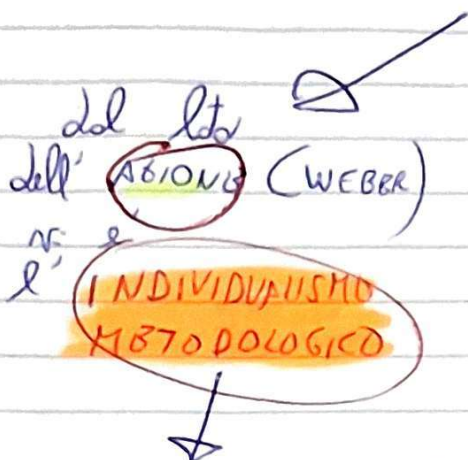 dal lato
dell' AZIONE (WEBER)
vi è
l' INDIVIDUALISMO
METODOLOGICO